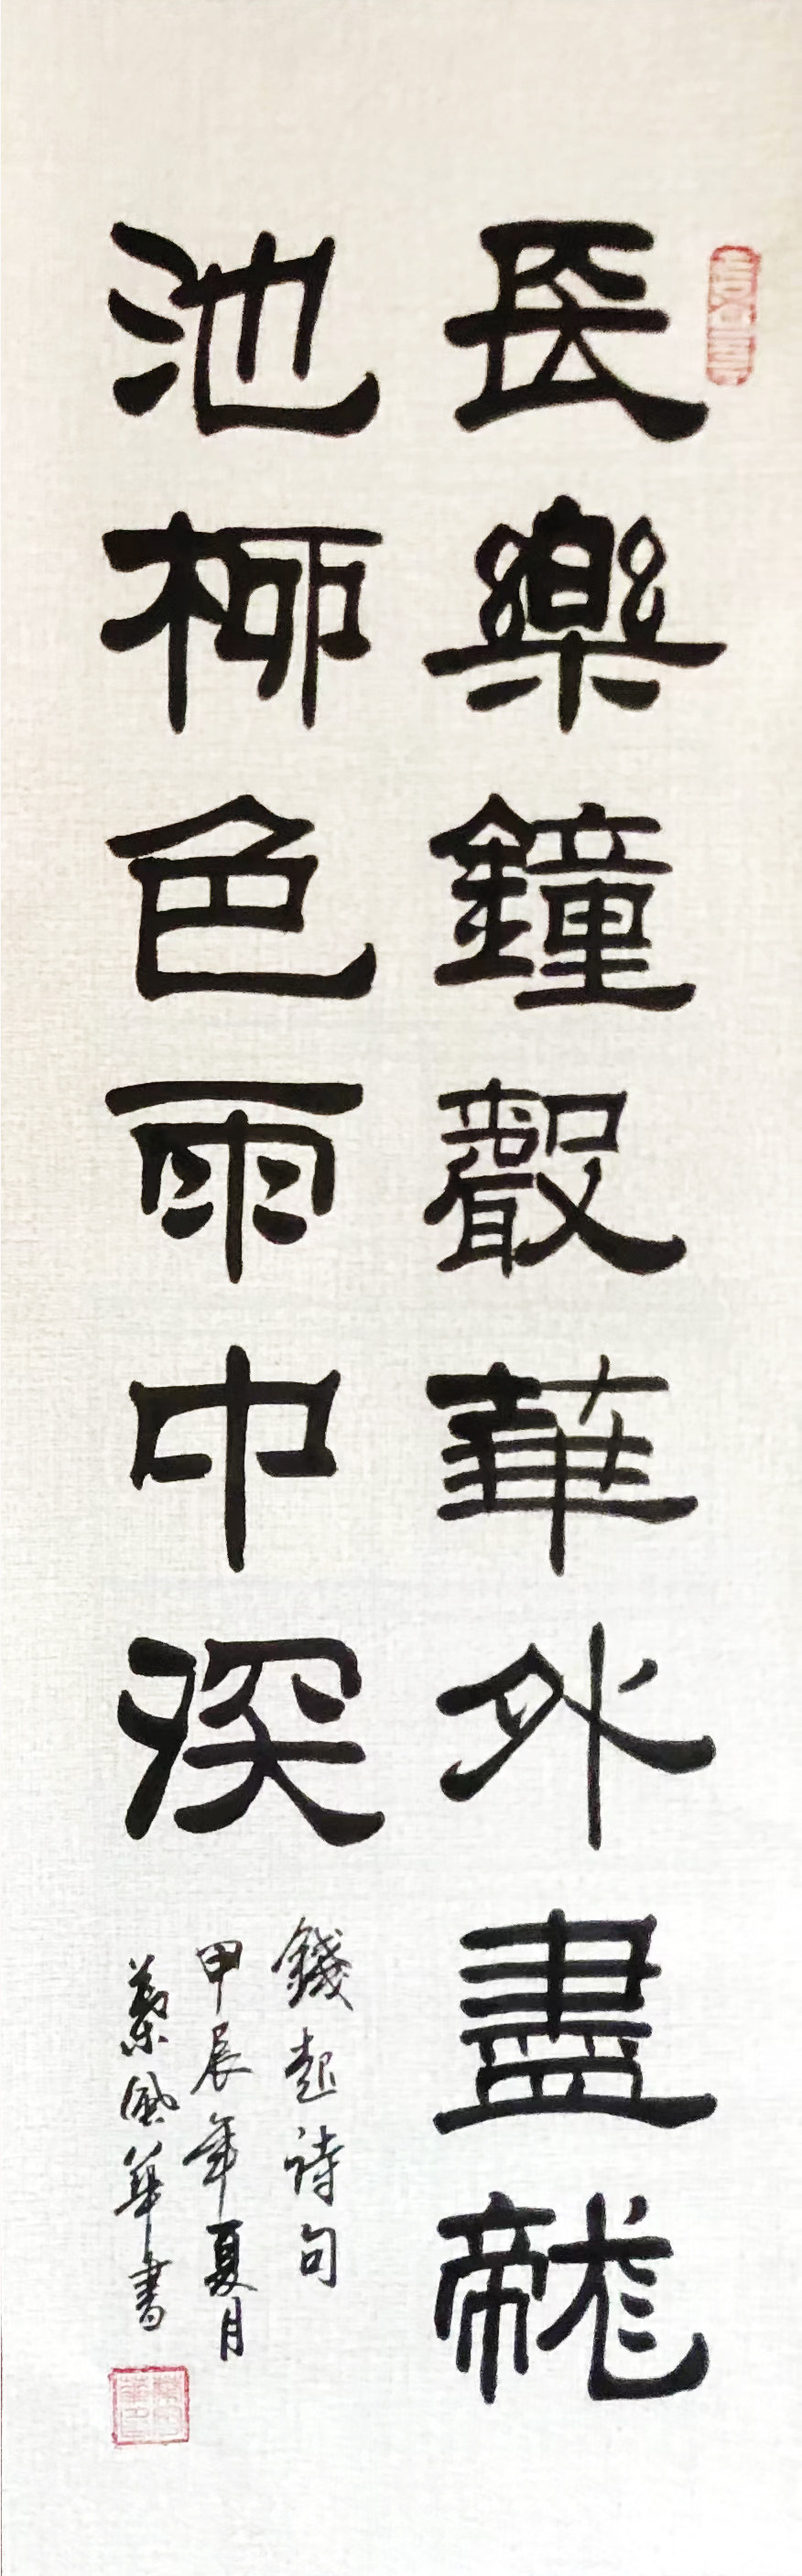 長樂鐘聲華外盡龍
池柳色雨中深
錢起詩句
甲辰年夏月
蔡風華書